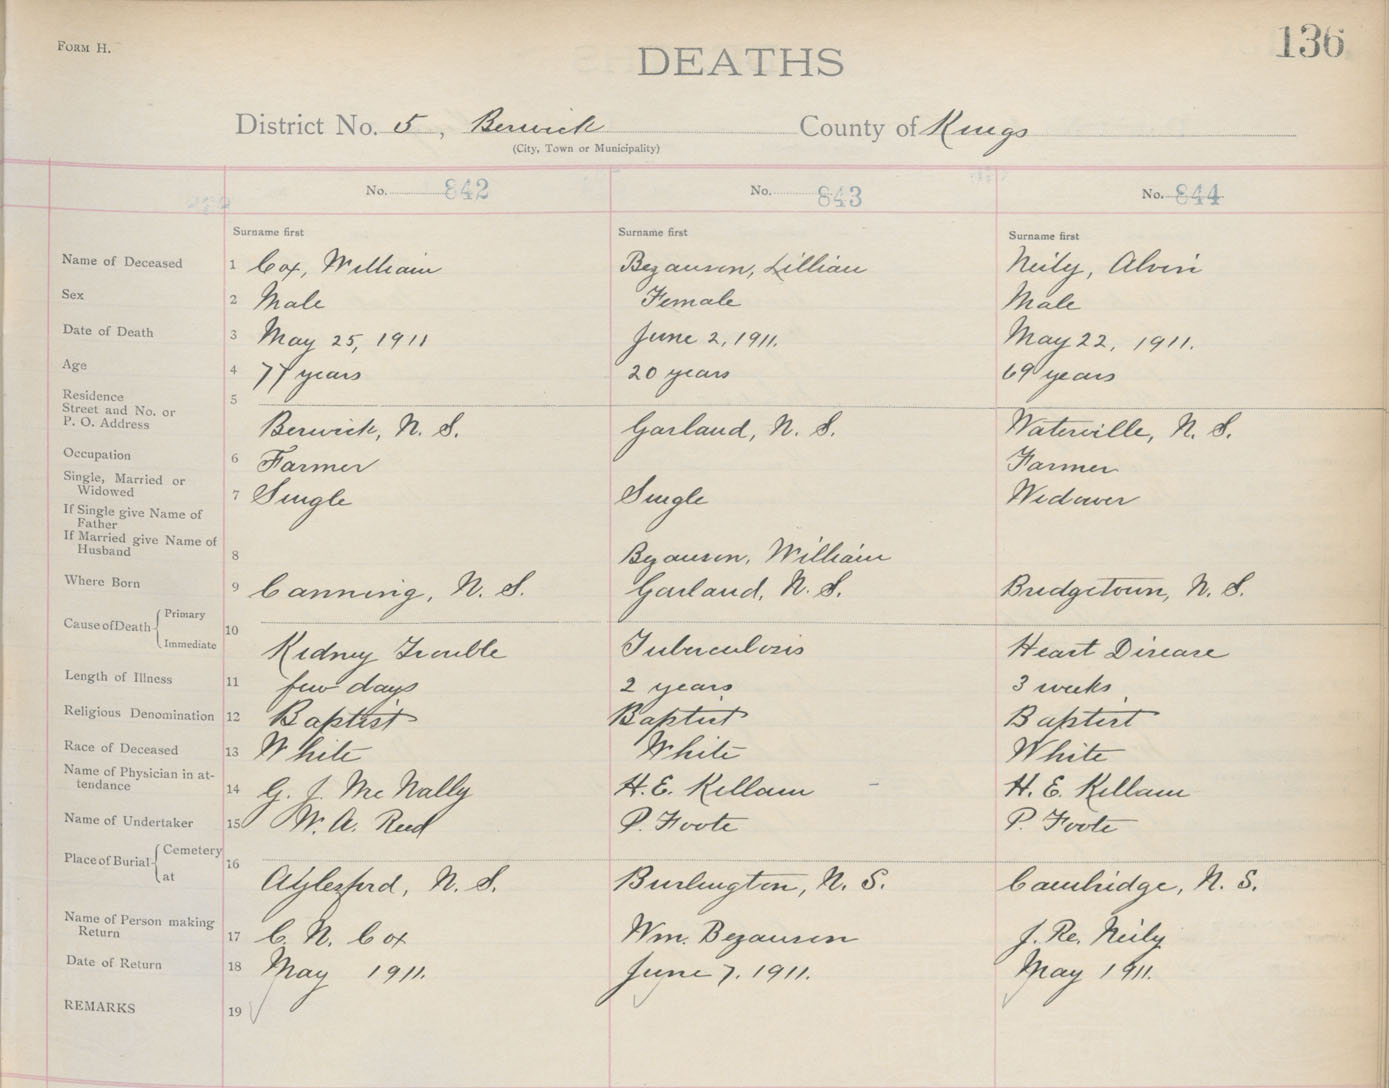 FORM H.
136
DEATHS
District No. 5, Berwick County of Kings
(City, Town or Municipality)
No. 842 No. 843 No. 844
Surname first Surname first Surname first
Name of Deceased 1 Cox, William Bezanson, Lillian Neily, Alvin
Sex 2 Male Female Male
Date of Death 3 May 25, 1911 June 2, 1911. May 22, 1911.
Age 4 77 years 20 years 69 years
Residence
Street and No. or
P. O. Address 5 Berwick, N. S. Garland, N. S. Waterville, N. S.
Occupation 6 Farmer Farmer
Single, Married or
Widowed 7 Single Single Widower
If Single give Name of
Father
If Married give Name of
Husband 8 Bezanson, William
Where Born 9 Canning, N. S. Garland, N. S. Bridgetown, N. S.
Cause of Death Primary
Immediate 10 Kidney Trouble Tuberculosis Heart Disease
Length of Illness 11 few days 2 years 3 weeks
Religious Denomination 12 Baptist Baptist Baptist
Race of Deceased 13 White White White
Name of Physician in at-
tendance 14 G. J. McNally H. E. Killam H. E. Killam
Name of Undertaker 15 W. A. Reed P. Foote P. Foote
Place of Burial Cemetery
at 16 Aylesford, N. S. Burlington, N. S. Cambridge, N. S.
Name of Person making
Return 17 C. N. Cox Wm. Bezanson J. Neily
Date of Return 18 May 1911. June 7. 1911. May 1911.
REMARKS 19